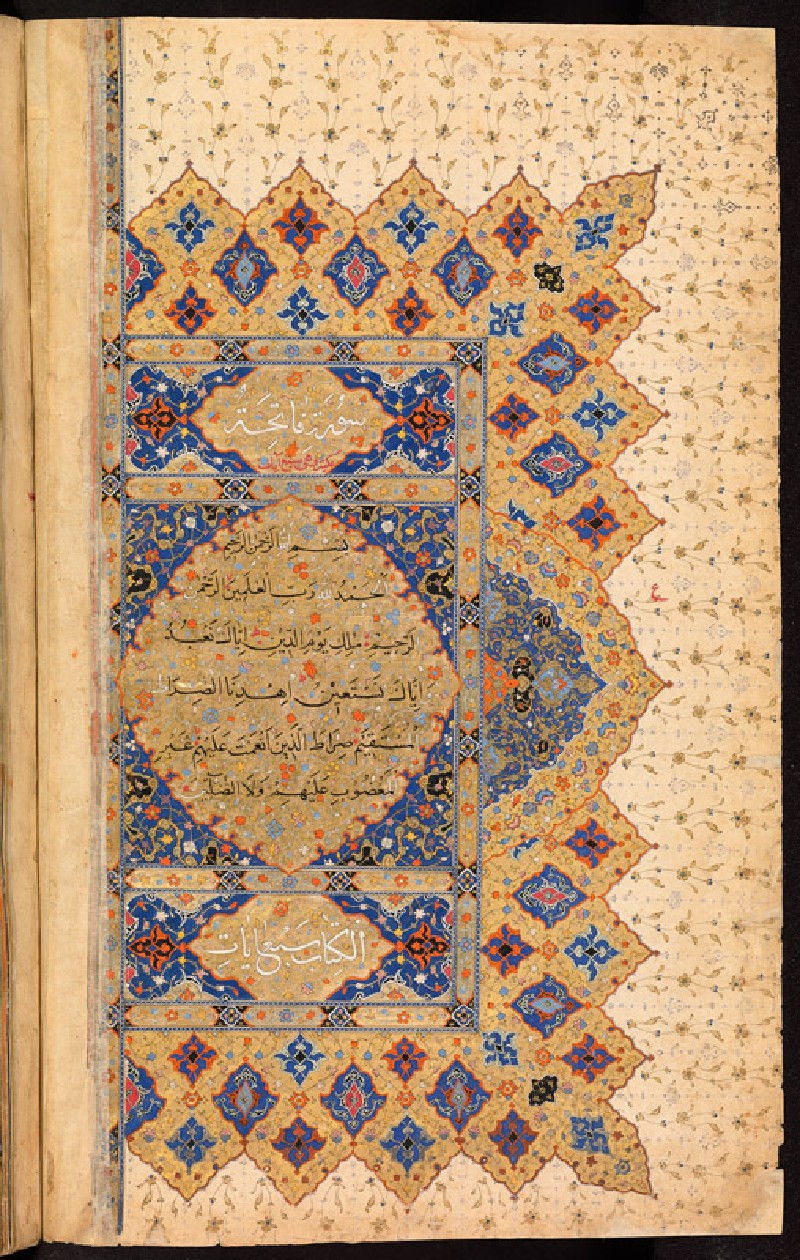 سورة فاتحة
بسم الله الرحمن الرحيم
الحمد لله رب العلمين الرحمن
الرحيم ملك يوم الدين اياك نعبد
واياك نستعين اهدنا الصراط
المستقيم صراط الذين انعمت عليهم غير
المغضوب عليهم ولا الضالين
الكتاب سبع ايات